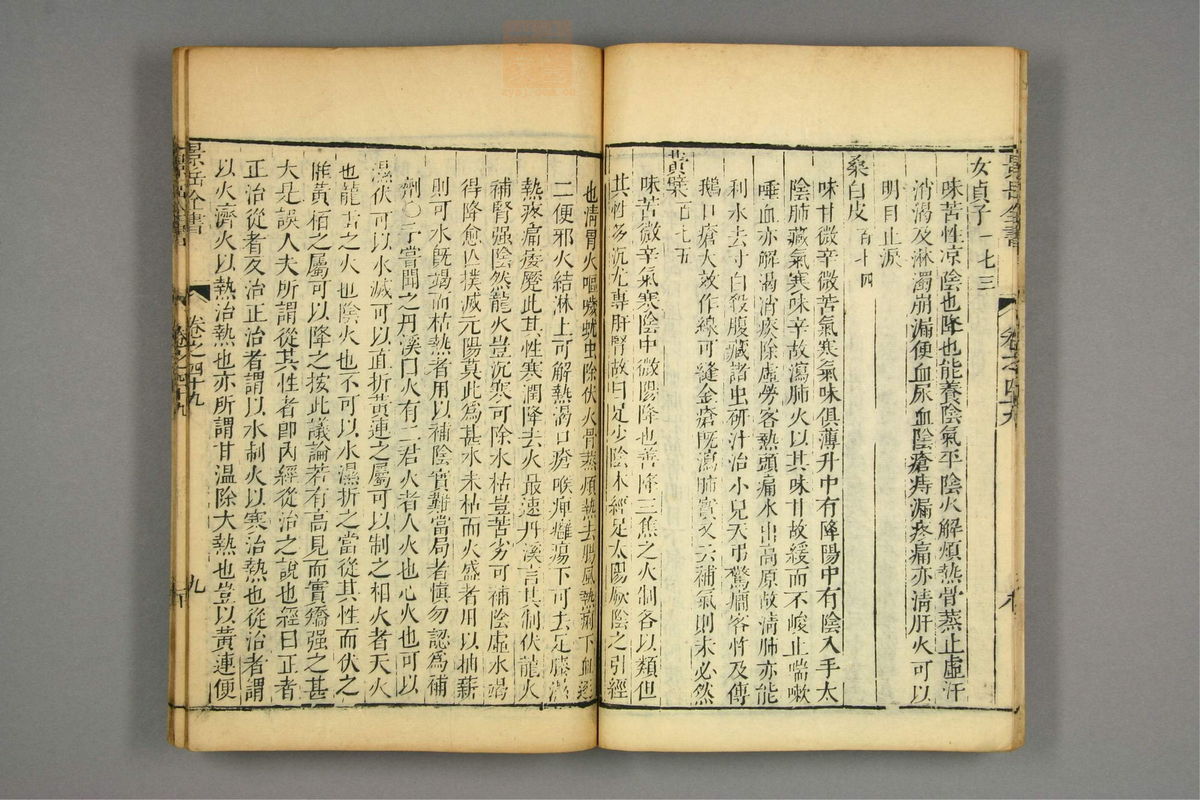 景岳全書
卷之四十九
女貞子一七三
味苦性凉陰也降也能養陰氣平陰火解煩熱骨蒸止虛汗
消渴及淋濁崩漏便血尿血陰瘡痔漏疼痛亦清肝火可以
明目止淚
桑白皮百七十四
味甘微辛微苦氣寒氣味俱薄升中有降陽中有陰入手太
陰肺藏氣寒味辛故瀉肺火以其味甘故緩而不峻止喘嗽
唾血亦解渴消痰除虛勞客熱頭痛水出高原故清肺亦能
利水去寸白殺腹臟諸虫研汁治小兒天弔驚癇客忤及傳
鵝口瘡大效作線可縫金瘡既瀉肺實又云補氣則未必然
黃蘗百七五
味苦微辛氣寒陰中微陽降也善降三焦之火制各以類但
其性多沉尤專肝腎故曰足少陰本經足太陽厥陰之引經
也清胃火嘔噦蚘虫除伏火骨蒸煩熱去腸風熱痢下血逐
二便邪火結淋上可解熱渴口瘡喉痺癰瘍下可去足膝濕
熱疼痛痿躄此其性寒潤降去火最速丹溪言其制伏龍火
補腎強陰然龍火豈沉寒可除水枯豈苦劣可補陰虛水竭
得降愈亡撲滅元陽莫此為甚水未枯而火盛者用以抽薪
則可水既竭而枯熱者用以補陰實難當局者慎勿認為補
劑○予嘗聞之丹溪曰火有二君火者人火也心火也可以
濕伏可以水滅可以直折黃連之屬可以制之相火者天火
也龍雷之火也陰火也不可以水濕折之當從其性而伏之
惟黃栢之屬可以降之按此議論若有高見而實矯强之甚
大是誤人夫所謂從其性者即內經從治之說也經曰正者
正治從者反治正治者謂以水制火以寒治熱也從治者謂
以火濟火以熱治熱也亦所謂甘溫除大熱也豈以黃連便
景岳全書
卷之四十九
九